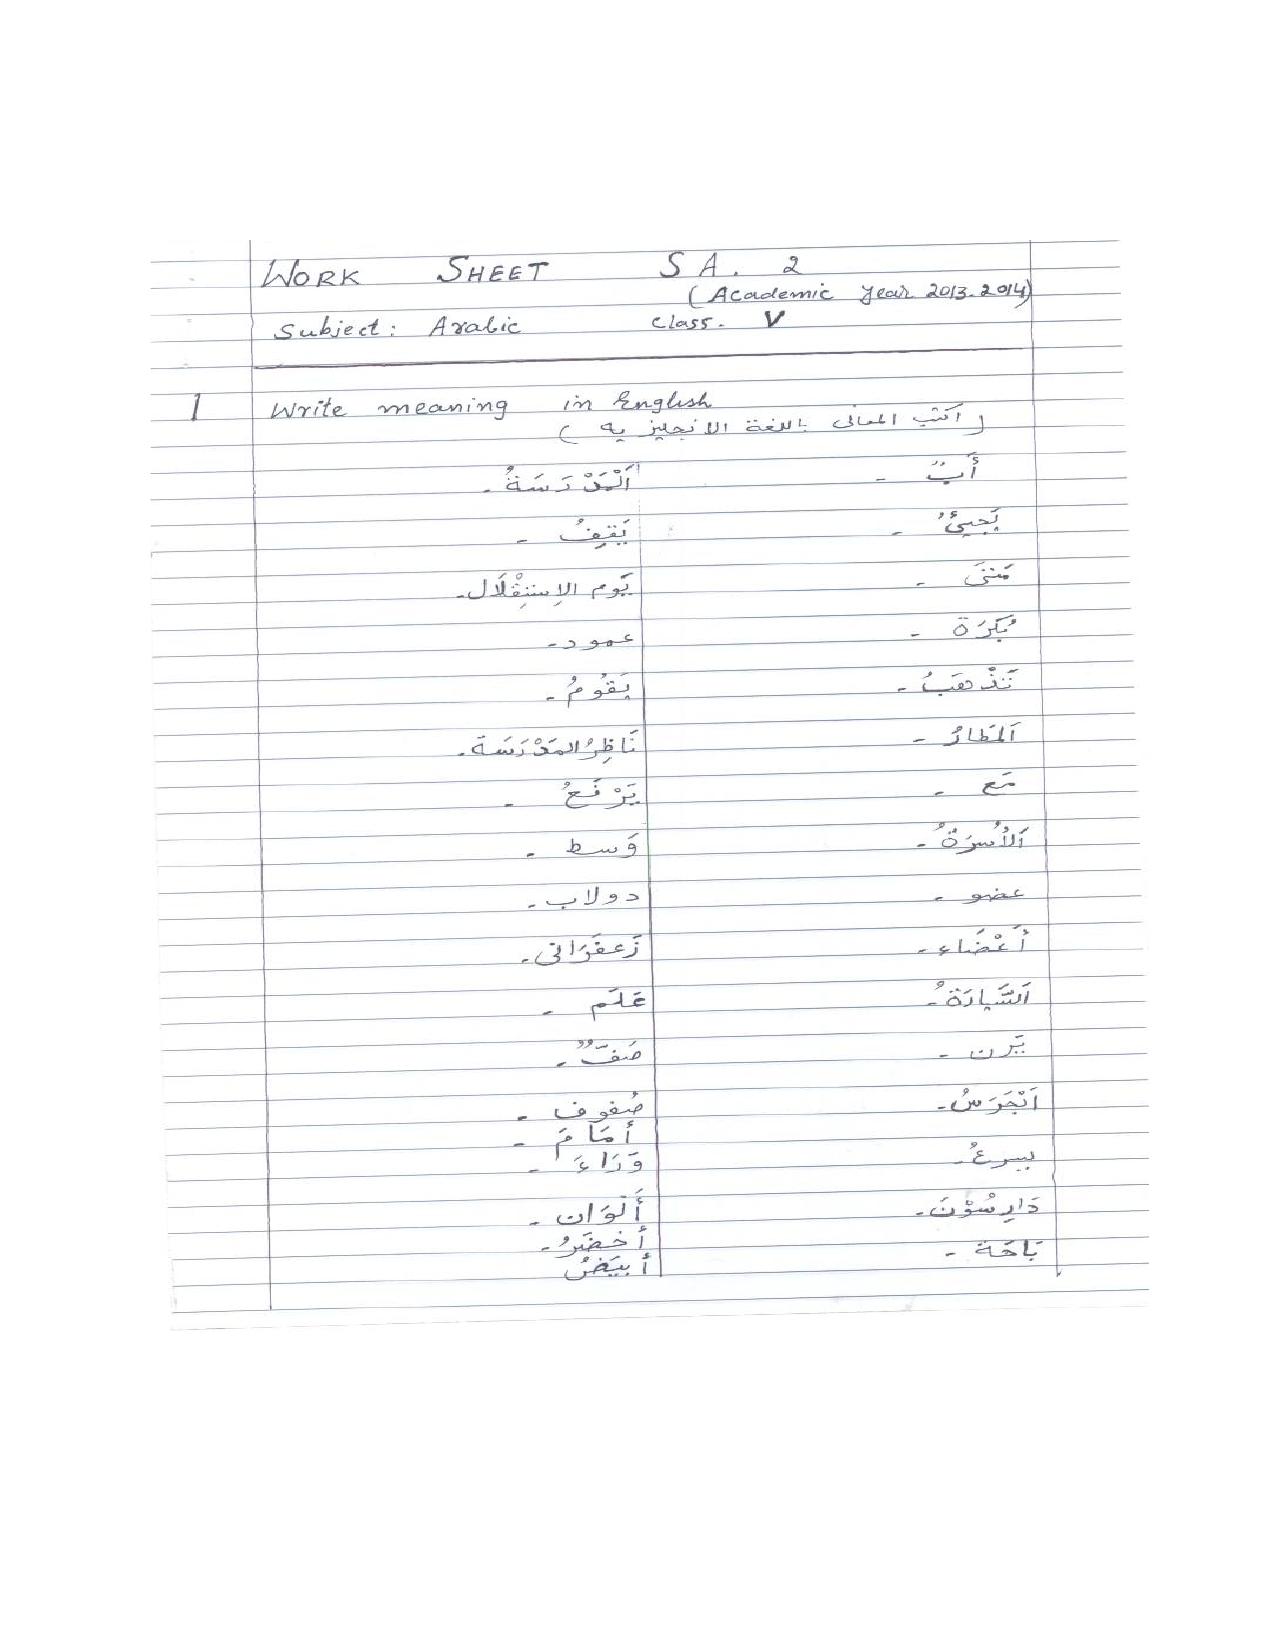 WORK SHEET S A. 2
(Academic year 2013-2014)
Subject: Arabic Class. V
1 Write meaning in English
(اكتب المعانى باللغة الانجليزيه)
أَبٌ -
اَلْمَدْرَسَةُ -
يَجِيئُ -
يَقِفُ -
مَتىَ -
يَوم الإسْتِقْلَال -
بُكرَة -
عمود -
تَذْهَبُ -
يَقُومُ -
اَلمَطَارُ -
نَاظِرُ المَدْرَسَة -
مَع -
يَرْفَعُ -
اَلأُسْرَةُ -
وَسط -
عضو -
دولاب -
أعْضَاء -
زَعفَرَانى -
اَلسَّيارَةُ -
عَلَم -
يَرن -
صَفٌّ -
اَلْجَرَسُ -
صُفوف -
أمَامَ -
يسرعُ -
وَرَاءَ -
دَارِسُوْنَ -
أَلْوَان -
بَاحَة -
أخضَرُ -
أبيَضُ